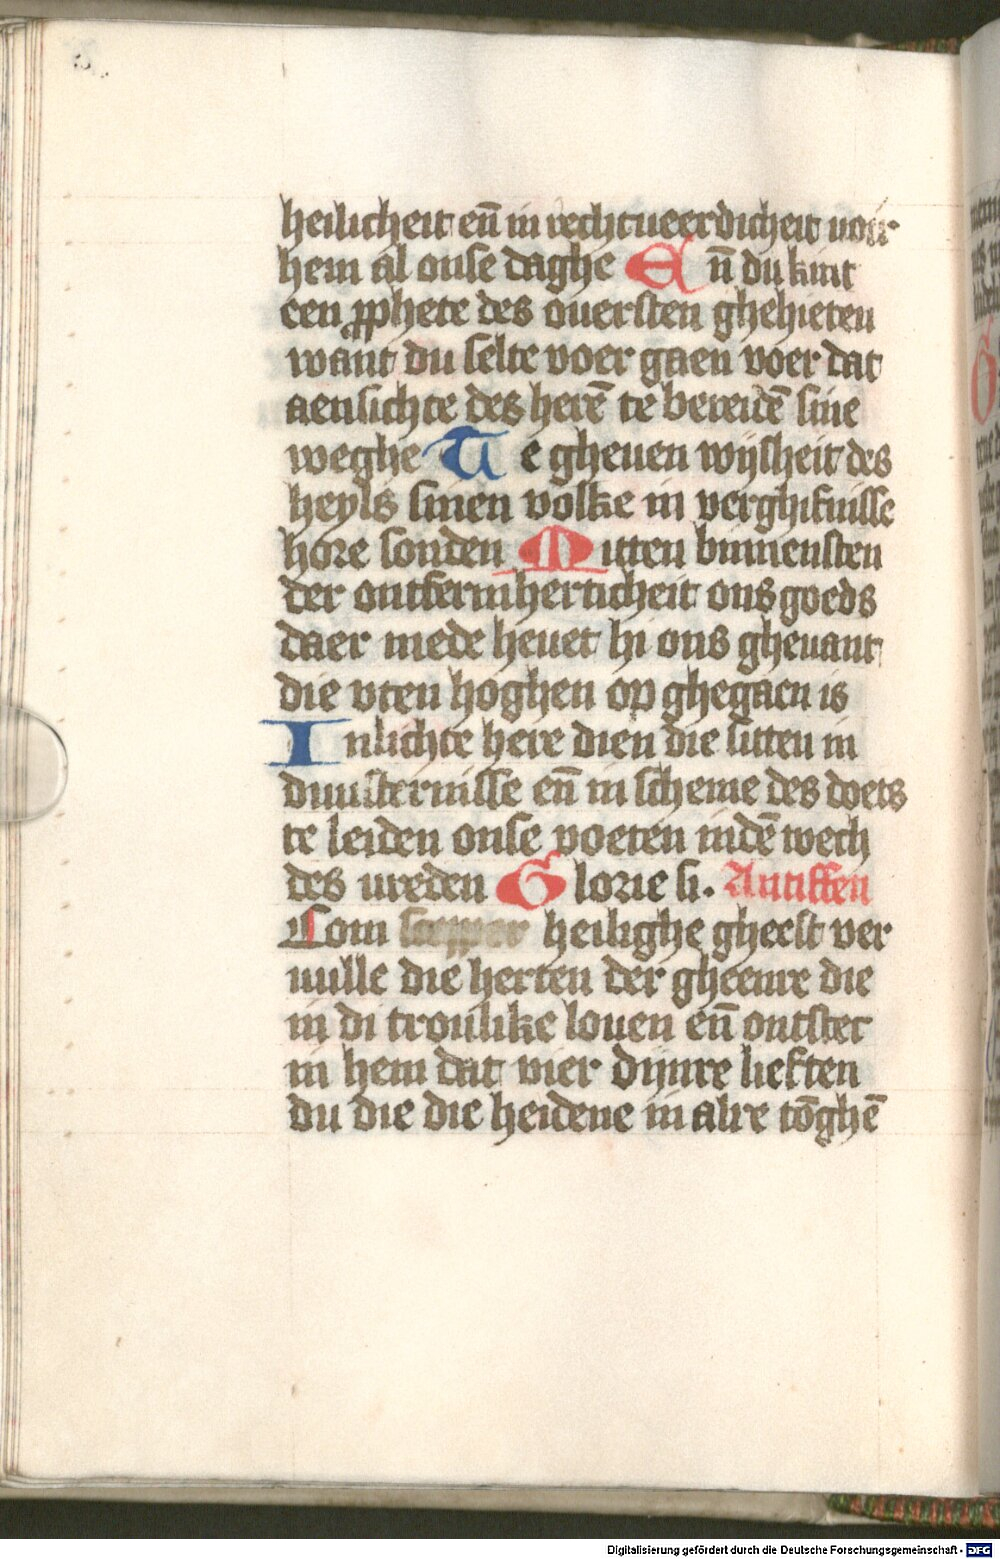 heilicheit en̄ in rechtueerdicheit voir
hem al onse daghe En̄ du kint
een ꝓphete des ouersten ghehieten
want du selte voer gaen voer dat
aensichte des herē te bereidē sine
weghe Te gheuen wijsheit des
heyls sinen volke in verghifnisse
hore sonden Mitten binnensten
der ontfermherticheit ons goeds
daer mede heuet hi ons gheuant
die vten hoghen op ghegaen is
Inlichte here dien die sitten in
duusternisse en̄ in scheme des doets
te leiden onse voeten indē wech
des vreden Glorie si. Antiffen
Com heilighe gheest ver
uulle die herten der gheenre die
in di troulike louen en̄ ontstec
in hem dat vier dijnre lieften
du die die heidene in alre tōghē
Digitalisierung gefördert durch die Deutsche Forschungsgemeinschaft - DFG